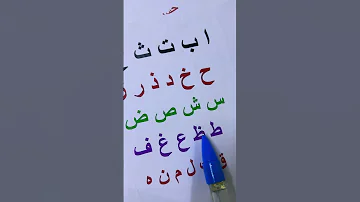 ا ب ت ث
ح خ د ذ ر
س ش ص ض
ط ظ ع غ ف
ل م ن ه